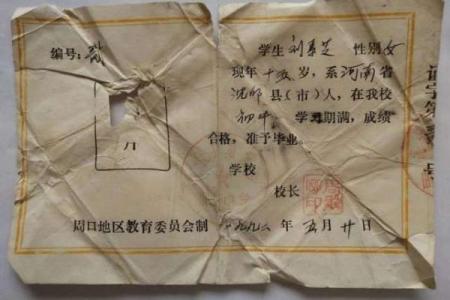 编号:
学生 刘 芝 性别 女
现年 十 岁，系 河南 省
沈邱 县(市)人，在我校
初中 学习期满，成绩
合格，准予毕业。
片
学校
校长
周口地区教育委员会制
一九九 年 五 月 廿 日
证字第 号